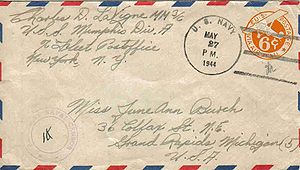 Charles D. LaVigne MM 3/c
U.S.S. Memphis Div. A
% Fleet Postoffice
New York N.Y.
U. S. NAVY
MAY
27
P M
1944
6¢
Miss June Ann Burch
36 Colfax St. N.E.
Grand Rapids Michigan (5)
U.S.A.
NAVAL CENSOR